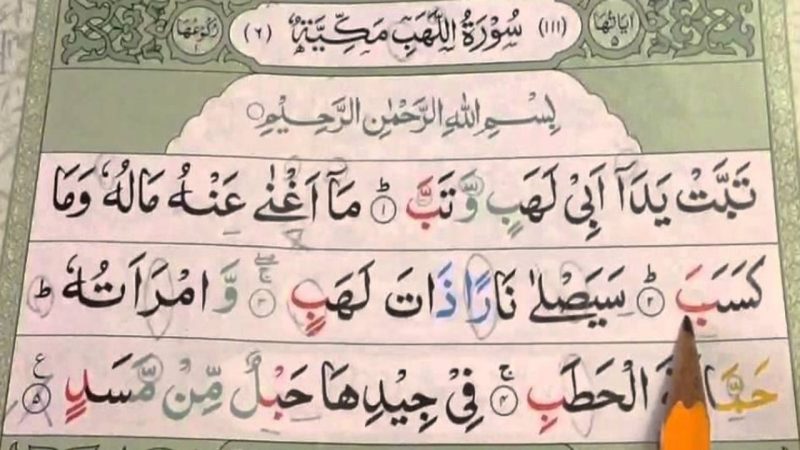 اٰيَاتُهَا ٥ (١١١) سُوْرَةُ اللَّهَبِ مَكِّيَّةٌ (٦) رُكُوْعُهَا ١
بِسْمِ اللهِ الرَّحْمٰنِ الرَّحِيْمِ
تَبَّتْ يَدَآ اَبِىْ لَهَبٍ وَّ تَبَّ ؕ ١ مَاۤ اَغْنٰى عَنْهُ مَالُهٗ وَمَا
كَسَبَ ؕ ٢ سَيَصْلٰى نَارًا ذَاتَ لَهَبٍ ۚۖ ٣ وَّ امْرَاَتُهٗ ؕ
الْحَطَبِ ۚ ٤ فِىْ جِيْدِهَا حَبْلٌ مِّنْ مَّسَدٍ ٥ ع